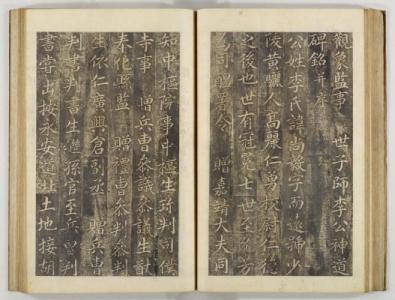 觀象監事 世子師李公神道
碑銘并序
公姓李氏諱尚
陵黃驪人高麗仁勇校尉仁德
之後也世有冠冕七世至
為司醞署令 贈嘉靖大夫同
知中樞院事中樞生 判司僕
寺事 贈兵曹參議參議生
奉化縣監 贈禮曹參判參判
生依仁廣興倉副丞 贈兵曹
判書判書生 孫官至兵曹判
書嘗出按永安道 土地接胡